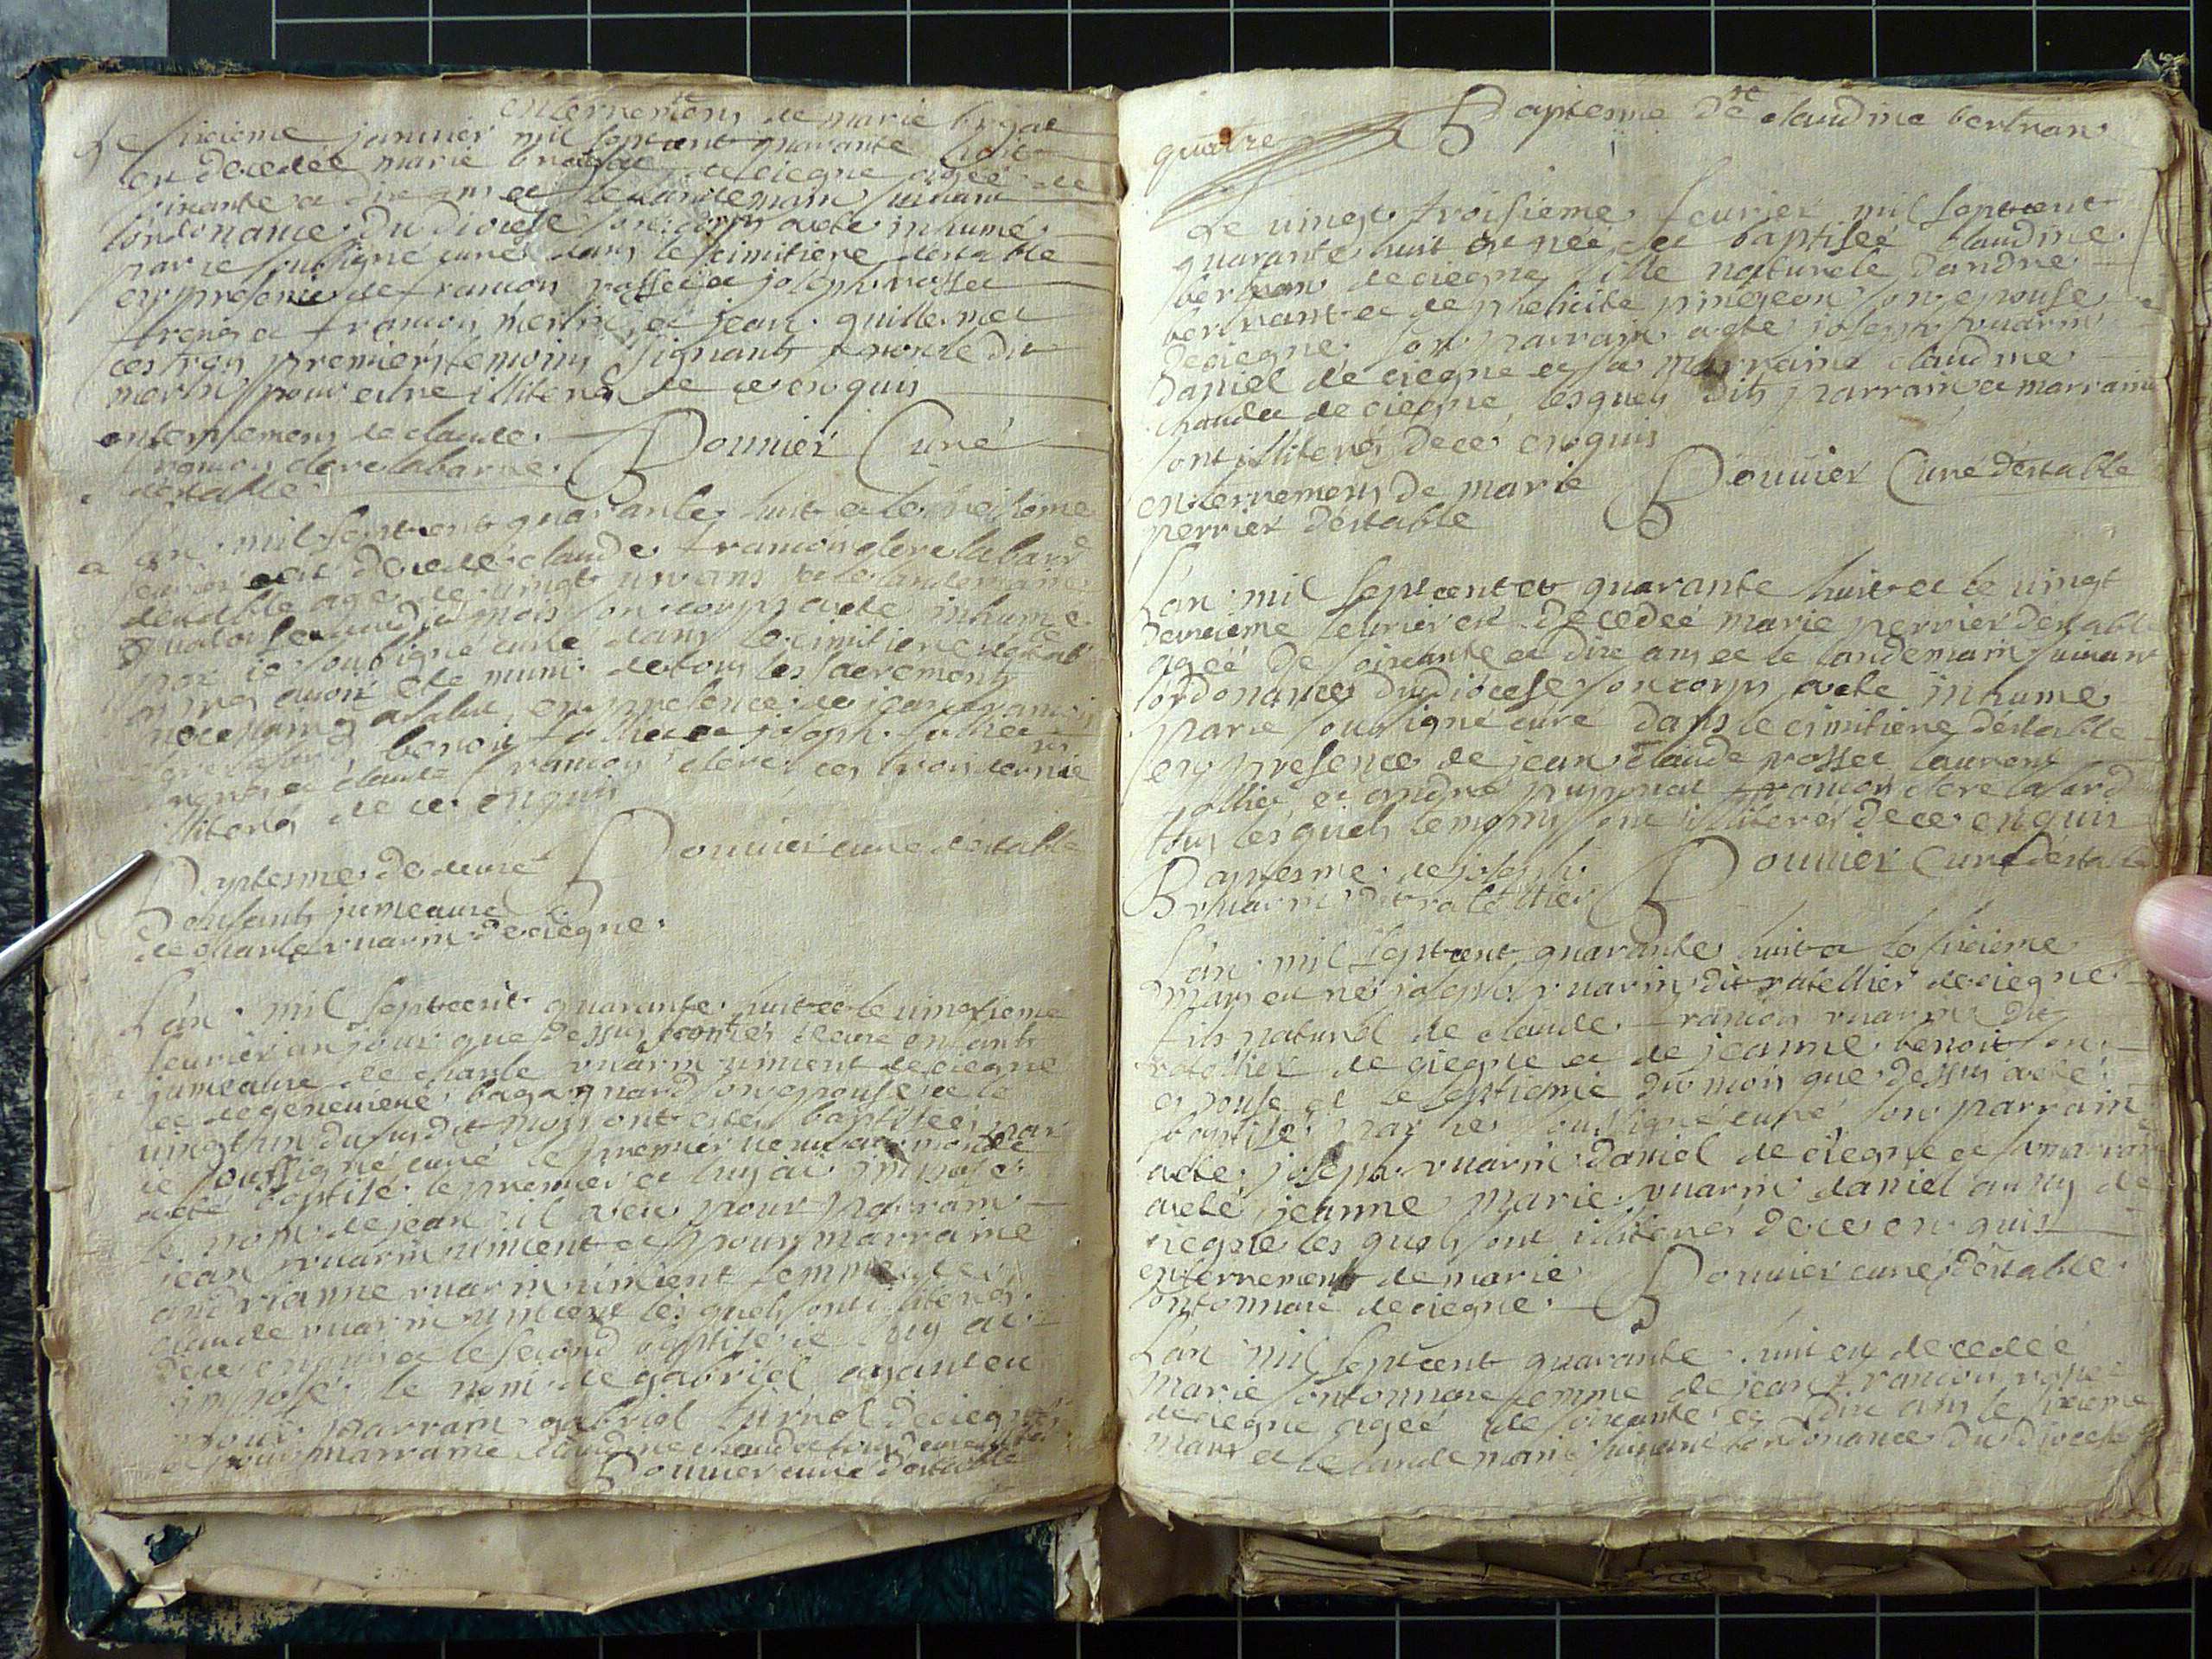 enterremens de marie
Le sixieme janvier mil septcent quarante huit
est decedeé marie de ciegne ageé de
soixante et dix ans et le landemain suivant
lordonance du diocese son corps a ete inhumé
par ie soubsigné curé dans le cimitiere destable
en presence de francois rosset et joseph rosset
freres et francois et jean guillermet
ces trois premiers temoins signants
pour estre illiterés de ce enquis
enterremens de claude Bouvier Curé
francois clerc labarre
destable
Lan mil septcent quarante huit et le treisieme
fevrier est decede claude francois clerc labard
destable age de vingt un ans et le landemain
quatorse dudit mois son corps a ete inhumé
par ie soubsigné curé dans le cimitiere
apres avoir ete muni de tous les sacremens
necessaires a salut en presence de jean francois
clerc labard benoit tollier et joseph tollier
freres et claude francois clerc ces trois
illiterés de ce enquis
Baptesme de deux Bouvier curé destable
enfants jumeaux
de charle vuarin de ciegne
Lan mil septcent quarante huit et le vingtieme
fevrier an jour que dessus sont nés deux enfants
jumeaux de charle vuarin vincent de ciegne
et de genevieve bagagnard son epouse et le
vingt un du susdit mois ont estes baptisés par
ie soussigné curé le premier venu au monde
a eté baptisé le premier et luy ai imposé
le nom de jean il a eu pour parrain
jean vuarin vincent et pour marraine
andrianne vuarin vincent femme de
claude vuarin vincent les quels sont illiterés
de ce enquis et le second baptise ie luy ai
imposé le nom de gabriel ayant eu
pour parrain gabriel de ciegne
et pour marraine claudine chaudet
Bouvier curé destable
quatre Baptesme de claudine bertran
Le vingt troisieme fevrier mil septcent
quarante huit est née et baptiseé claudine
bertran de ciegne fille naturele dandré
bertrant et de phelicité pingeon son epouse
de ciegne son parrain a ete joseph vuarin
daniel de ciegne et sa marraine claudine
chaudet de ciegne lesquels dits parrain et marraine
sont illiterés de ce enquis
enterremens de marie Bouvier Curé destable
perrier destable
Lan mil septcent et quarante huit et le vingt
deuxieme fevrier est decedeé marie perrier destable
ageé de soixante et dix ans et le landemain suivant
lordonance du diocese son corps a ete inhume
par ie soubsigne curé dans le cimitiere destable
en presence de jean claude rosset laurent
tollier et andré francois clerc labard
tous lesquels temoins sont illiterés de ce enquis
Baptesme de joseph Bouvier Curé destable
vuarin dit ratellier
Lan mil septcent quarante huit et le sixieme
mars est né joseph vuarin dit ratellier de ciegne
fils naturel de claude francois vuarin dit
ratellier de ciegne et de jeanne benoit son
epouse et le septieme du mois que dessus a eté
baptisé par ie soussigné curé son parrain
a ete joseph vuarin daniel de ciegne et sa marraine
a eté jeanne marie vuarin daniel aussy de
ciegne les quels sont illiterés de ce enquis
enterrement de marie Bouvier curé destable
fontonnaz de ciegne
Lan mil septcent quarante huit est decedeé
marie fontonnaz femme de jean francois
de ciegne ageé de soixante et dix ans le sixieme
mars et le landemain suivant lordonance du diocese